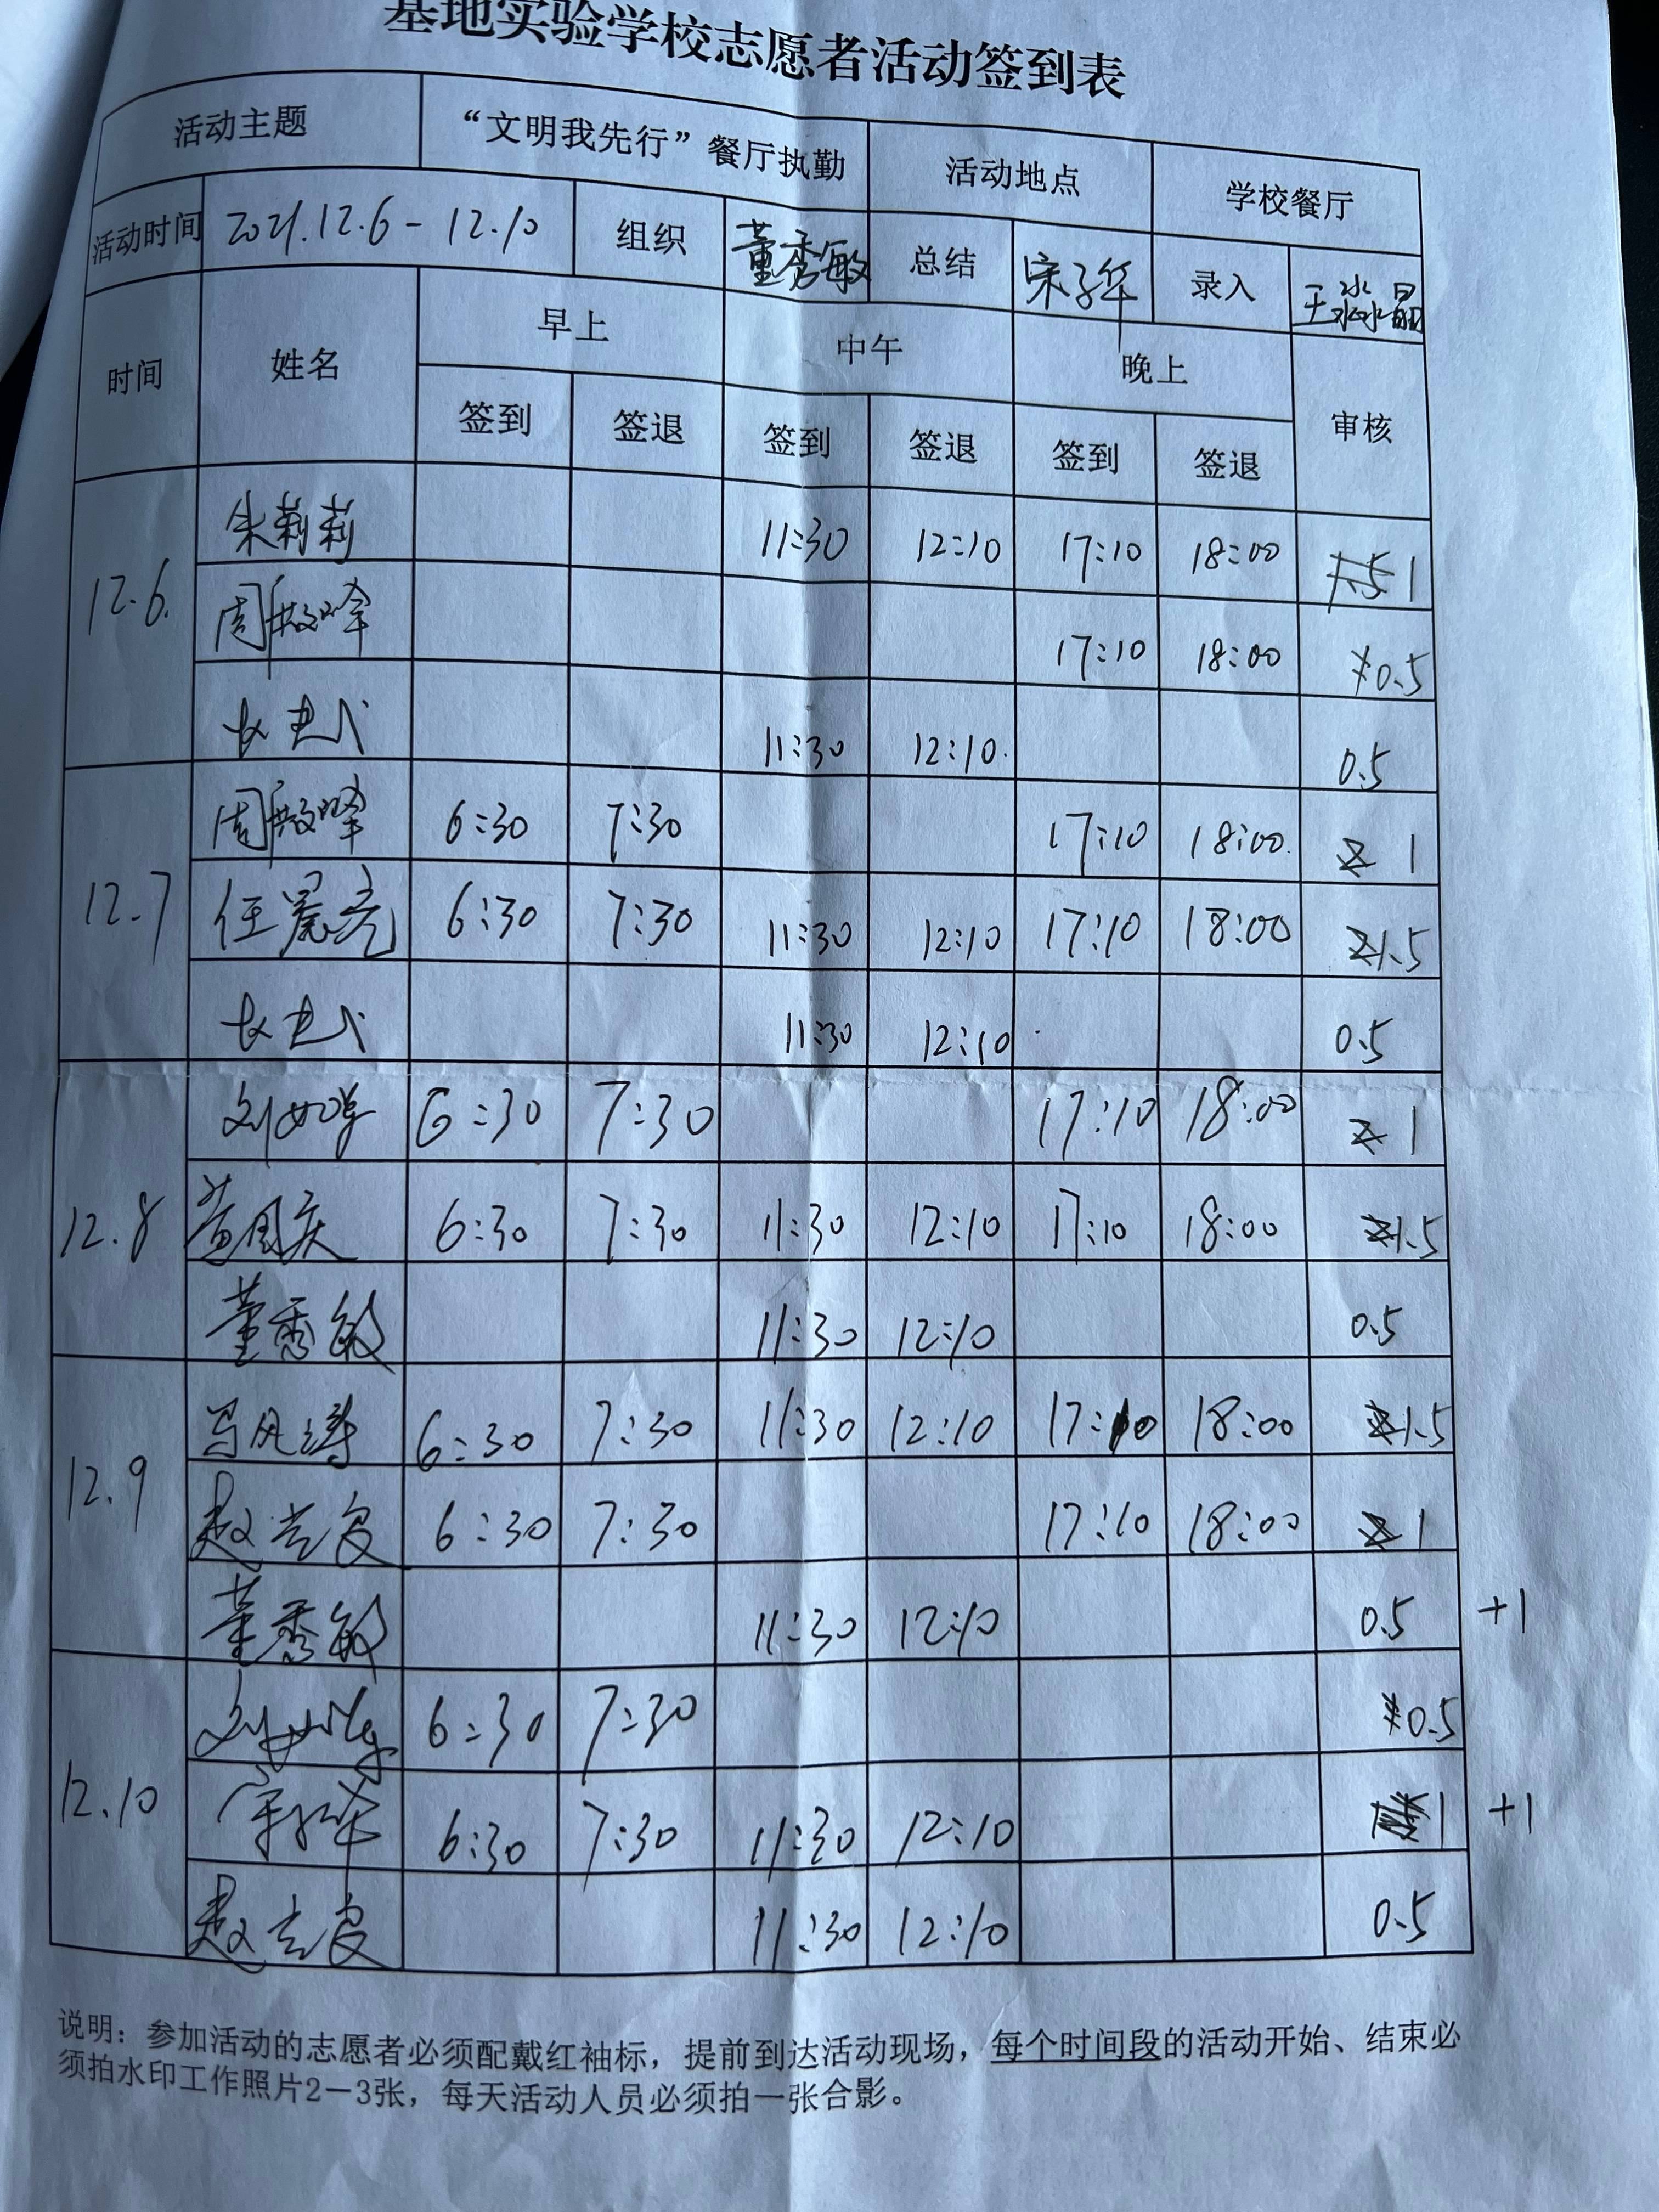 基地实验学校志愿者活动签到表
活动主题 “文明我先行”餐厅执勤 活动地点 学校餐厅
活动时间 2021.12.6-12.10 组织 董秀敏 总结 宋子华 录入 王淼晶
时间 姓名 早上 中午 晚上 审核
签到 签退 签到 签退 签到 签退
12.6. 朱莉莉 11:30 12:10 17:10 18:00 1
周殿峰 17:10 18:00 0.5
11:30 12:10. 0.5
12.7 周殿峰 6:30 7:30 17:10 18:00. 1
任晨亮 6:30 7:30 11:30 12:10 17:10 18:00 1.5
11:30 12:10 0.5
12.8 6:30 7:30 17:10 18:00 1
黄国庆 6:30 7:30 11:30 12:10 17:10 18:00 1.5
董秀敏 11:30 12:10 0.5
12.9 6:30 7:30 11:30 12:10 17:10 18:00 1.5
6:30 7:30 17:10 18:00 1
董秀敏 11:30 12:10 0.5 +1
12.10 6:30 7:30 0.5
宋子华 6:30 7:30 11:30 12:10 1 +1
11:30 12:10 0.5
说明：参加活动的志愿者必须配戴红袖标，提前到达活动现场，每个时间段的活动开始、结束必
须拍水印工作照片2—3张，每天活动人员必须拍一张合影。